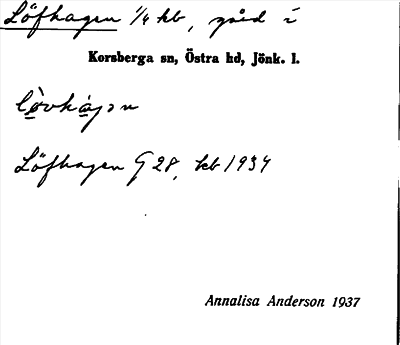 Löfhagen 1/4 kb, gård i
Korsberga sn, Östra hd, Jönk. l.
Löfhagen G 28, kb 1934
Annalisa Anderson 1937